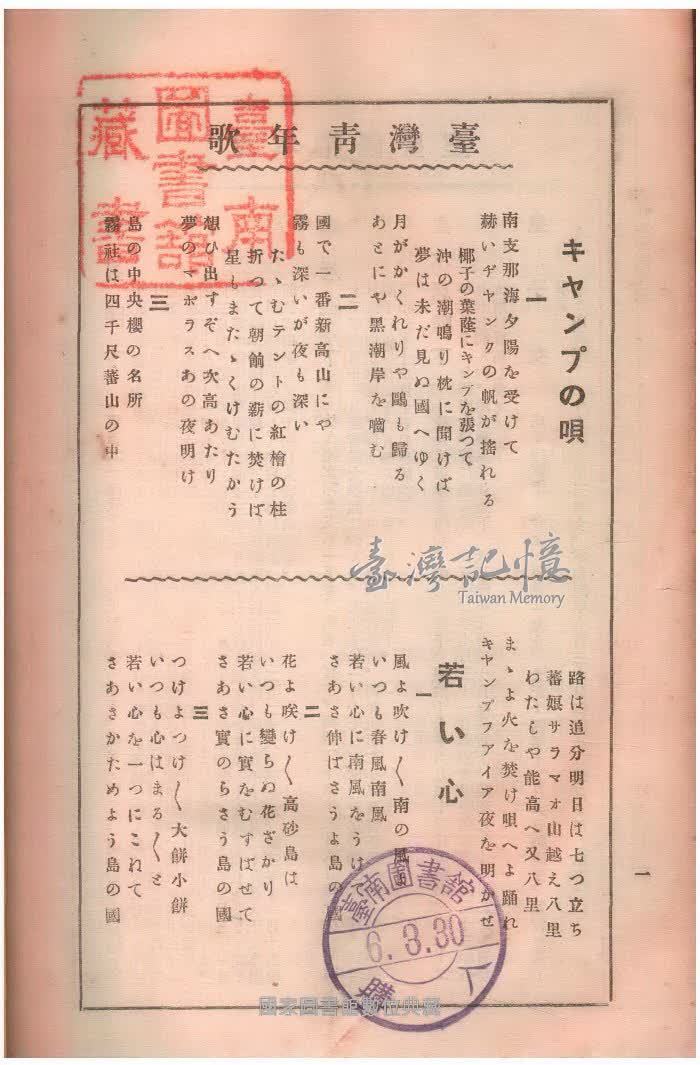 臺灣靑年歌
キャンプの唄
一
南支那海夕陽を受けて
赫いヂヤンクの帆が搖れる
椰子の葉蔭にキャンプを張つて
沖の潮鳴り枕に聞けば
夢は未だ見ぬ國へゆく
月がかくれりや鷗も歸る
あとにや黑潮岸を嚙む
二
國で一番新高山にや
霧も深いが夜も深い
たゝむテントの紅檜の柱
折つて朝餉の薪に焚けば
星もまたゝくけむたかう
想ひ出すぞへ次高あたり
夢のマボラスあの夜明け
三
島の中央櫻の名所
霧社は四千尺蕃山の中
路は追分明日は七つ立ち
蕃娘サラマオ山越え八里
わたしや能高へ又八里
まゝよ火を焚け唄へよ踊れ
キヤンプフアイア夜を明かせ
若い心
一
風よ吹け〱南の風よ
いつも春風南風
若い心に南風をうけ
さあさ伸ばさうよ島の國
二
花よ咲け〱高砂島は
いつも變らぬ花ざかり
若い心に實をむすばせて
さあさ實のらさう島の國
三
つけよつけ〱大餅小餅
いつも心はまる〱と
若い心を一つにこねて
さあさかためよう島の國
一
臺南圖書館藏書
臺南圖書館
6.3.30
購入
臺灣記憶
Taiwan Memory
國家圖書館數位典藏